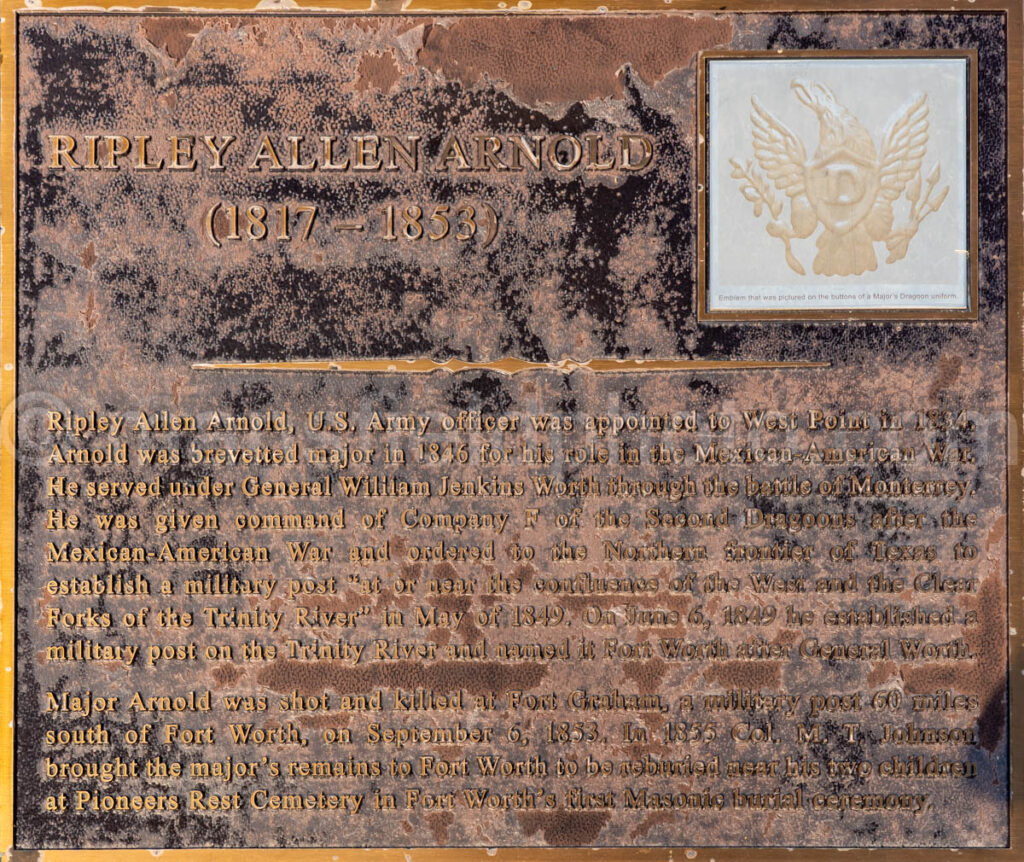 RIPLEY ALLEN ARNOLD
(1817 – 1853)
D
Emblem that was pictured on the buttons of a Major's Dragoon uniform.
Ripley Allen Arnold, U.S. Army officer was appointed to West Point in 1834.
Arnold was brevetted major in 1846 for his role in the Mexican-American War.
He served under General William Jenkins Worth through the battle of Monterrey.
He was given command of Company F of the Second Dragoons after the
Mexican-American War and ordered to the Northern frontier of Texas to
establish a military post "at or near the confluence of the West and the Clear
Forks of the Trinity River" in May of 1849. On June 6, 1849 he established a
military post on the Trinity River and named it Fort Worth after General Worth.
Major Arnold was shot and killed at Fort Graham, a military post 60 miles
south of Fort Worth, on September 6, 1853. In 1855 Col. M. T. Johnson
brought the major's remains to Fort Worth to be reburied near his two children
at Pioneers Rest Cemetery in Fort Worth's first Masonic burial ceremony.